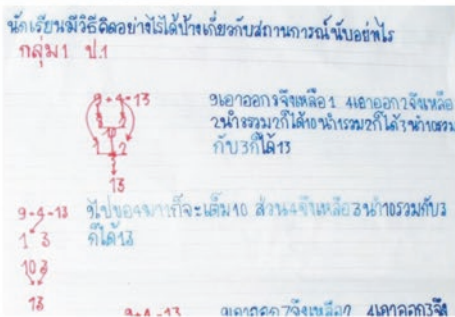 นักเรียนมีวิธีคิดอย่างไรได้บ้างเกี่ยวกับสถานการณ์นับอย่างไร
กลุ่ม1 ป.1
9+4=13
9เอาออก8จึงเหลือ1 4เอาออก2จึงเหลือ
2นำ8รวม2ก็ได้10นำ1รวม2ก็ได้3นำ10รวม
กับ3ก็ได้13
8 2
10
1 2
3
13
9+4=13
9ไปขอ4มา1ก็จะเต็ม10 ส่วน4จึงเหลือ3นำ10รวมกับ3
1 3
ก็ได้13
10 3
13
9+4=13
9เอาออก7จึงเหลือ2 4เอาออก3จึง